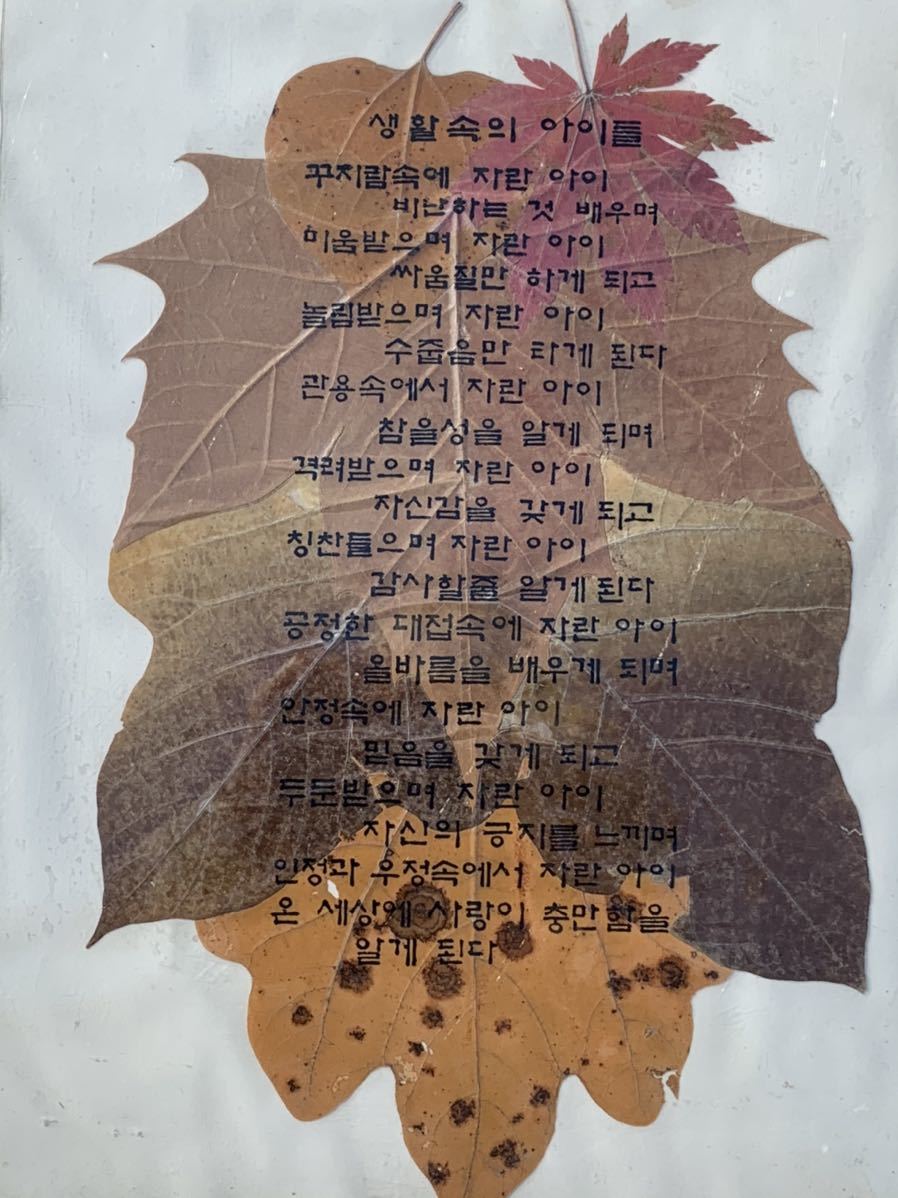 생활속의 아이들
꾸지람속에 자란 아이
비난하는 것 배우며
미움받으며 자란 아이
싸움질만 하게 되고
놀림받으며 자란 아이
수줍음만 타게 된다
관용속에서 자란 아이
참을성을 알게 되며
격려받으며 자란 아이
자신감을 갖게 되고
칭찬들으며 자란 아이
감사할줄 알게된다
공정한 대접속에 자란 아이
올바름을 배우게 되며
안정속에 자란 아이
믿음을 갖게 되고
두둔받으며 자란 아이
자신의 긍지를 느끼며
인정과 우정속에서 자란 아이
온 세상에 사랑이 충만함을
알게 된다